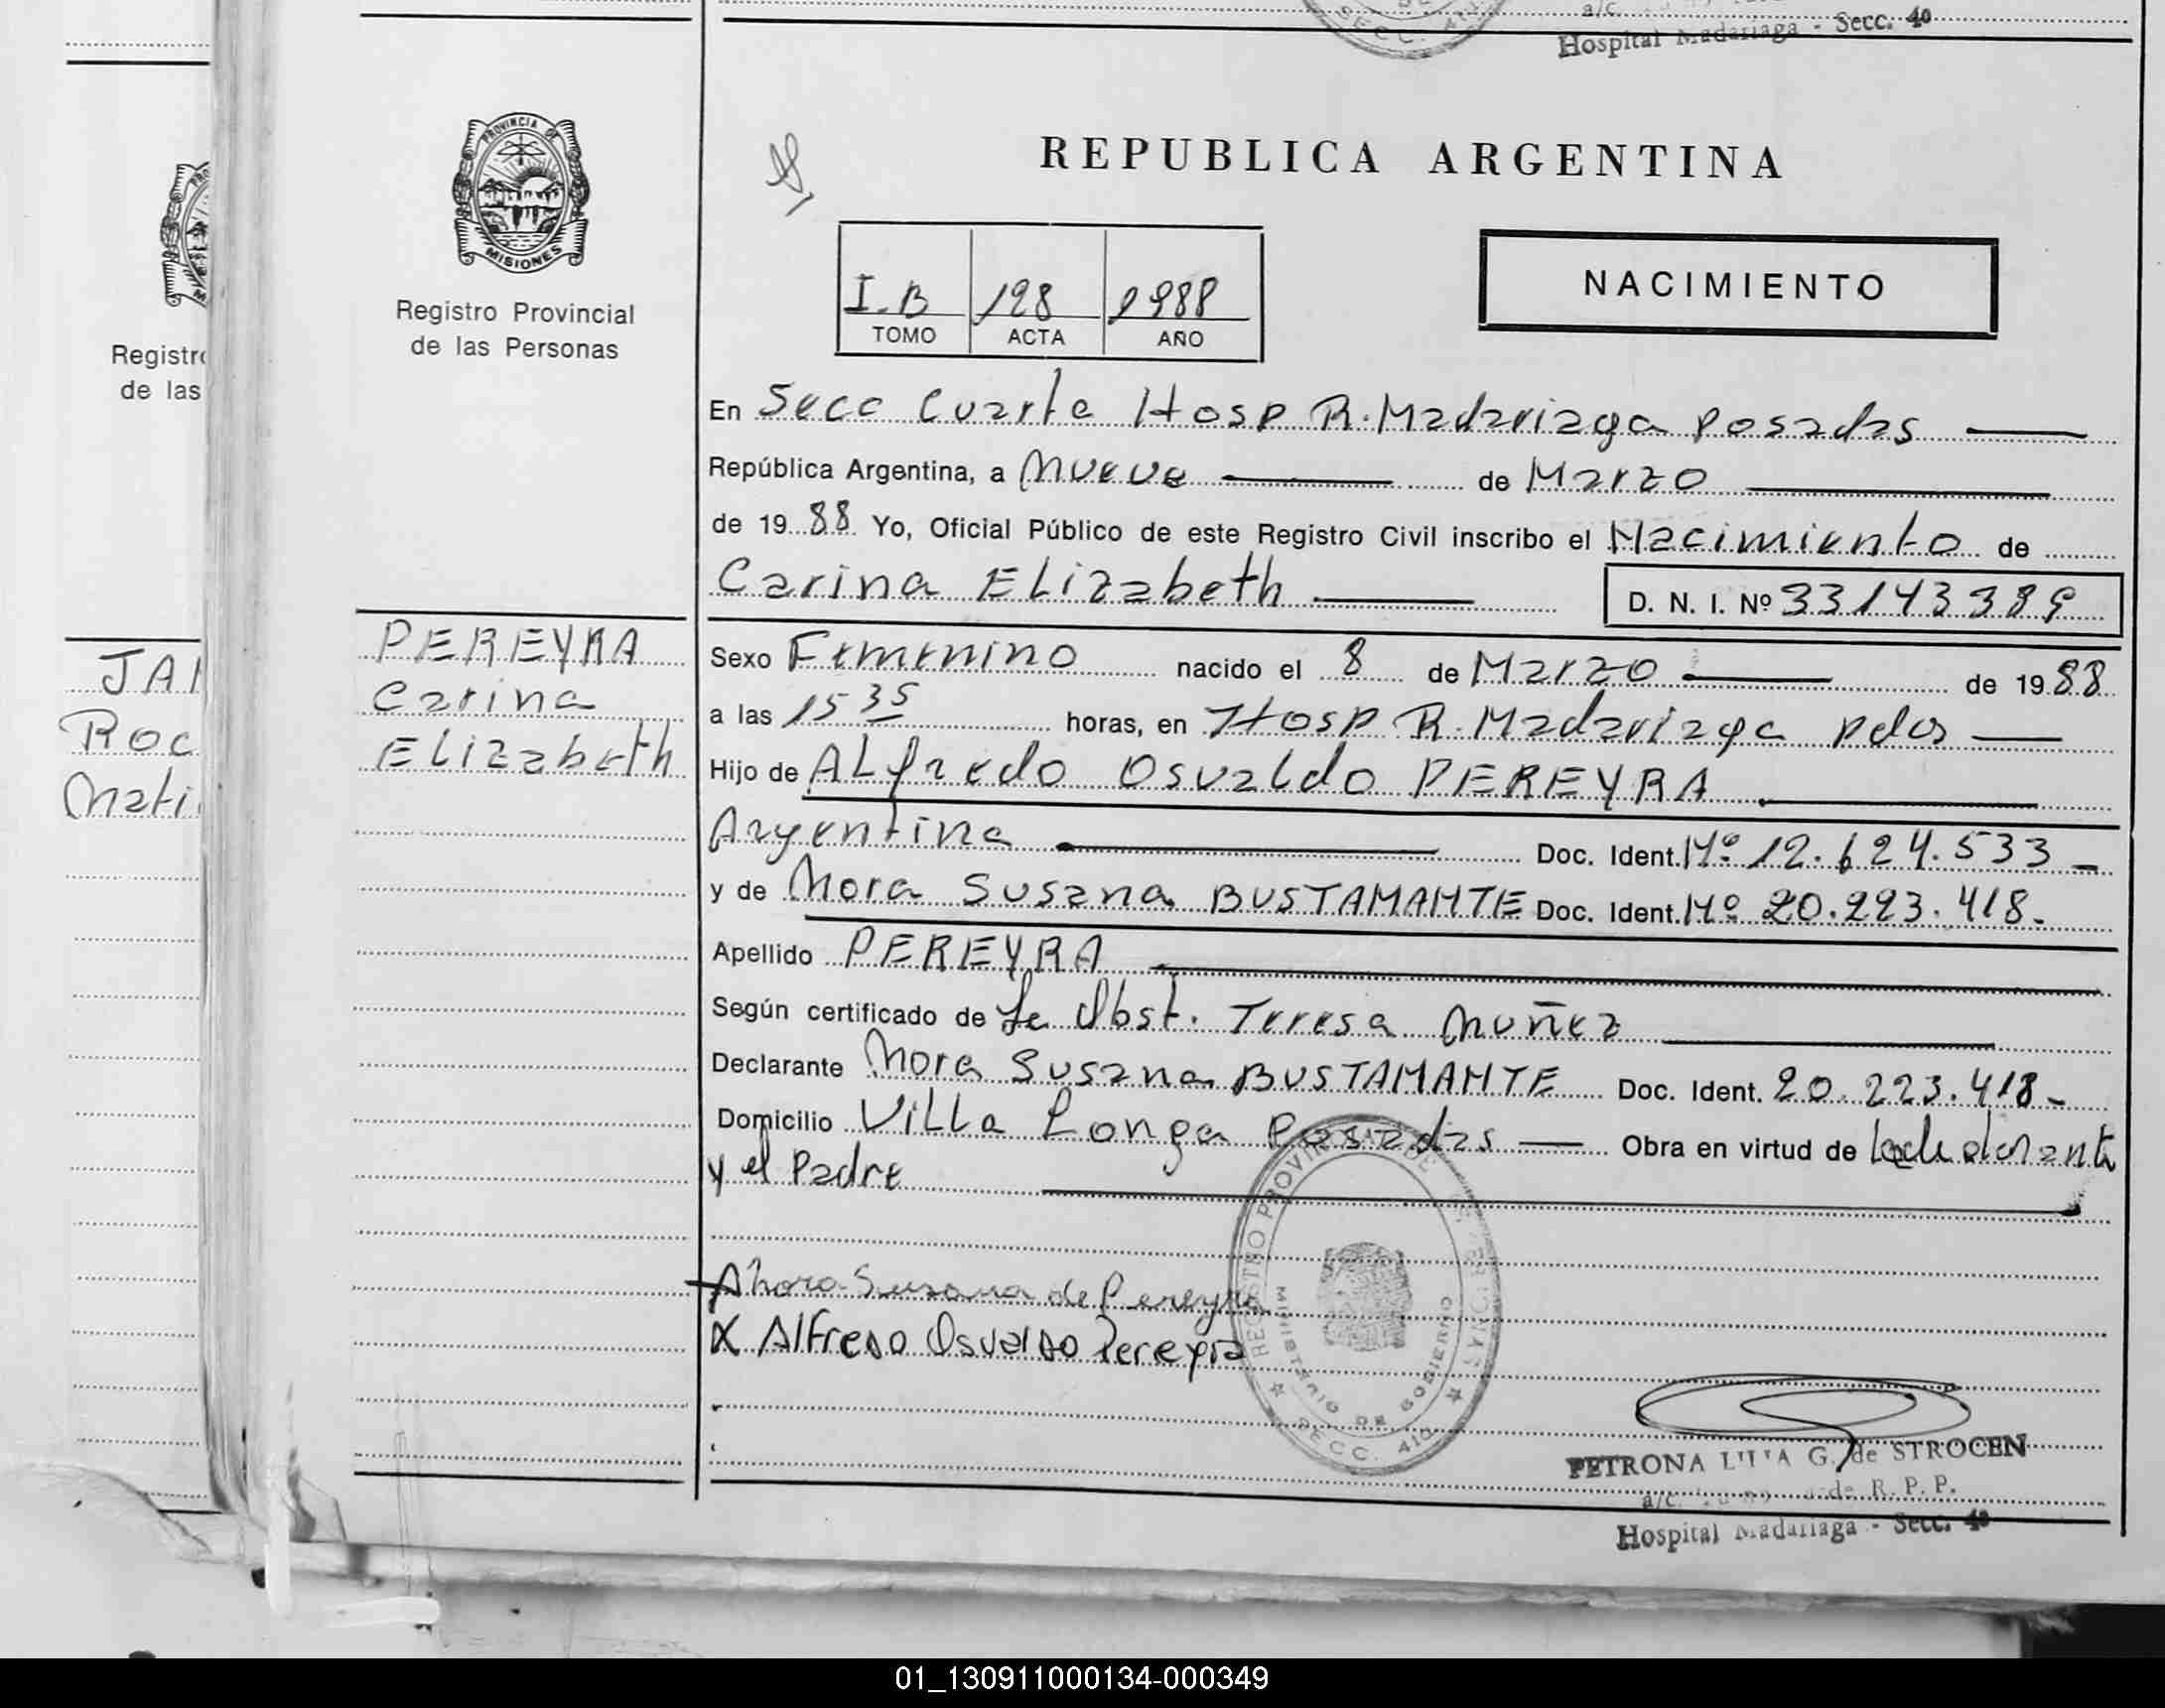 Hospital Madariaga - Secc. 4ª
PROVINCIA DE
MISIONES
Registro Provincial
de las Personas
REPUBLICA ARGENTINA
I-B 128 1988
TOMO ACTA AÑO
NACIMIENTO
En Secc Cuarta Hosp R. Madariaga Posadas
República Argentina, a Nueve de Marzo
de 1988 Yo, Oficial Público de este Registro Civil inscribo el Nacimiento de
Carina Elizabeth D. N. I. Nº 33143389
Sexo Femenino nacido el 8 de Marzo de 1988
a las 15 35 horas, en Hosp R. Madariaga Pdas
Hijo de Alfredo Osvaldo PEREYRA
Argentina Doc. Ident. Nº 12.624.533
y de Nora Susana BUSTAMANTE Doc. Ident. Nº 20.223.418
Apellido PEREYRA
Según certificado de La Obst. Teresa Nuñez
Declarante Nora Susana BUSTAMANTE Doc. Ident. 20.223.418
Domicilio Villa Longa Posadas Obra en virtud de la declarante
y el Padre
PEREYRA
Carina
Elizabeth
Nora Susana de Pereyra
X Alfredo Osvaldo Pereyra
REGISTRO PROVINCIAL DE LAS PERSONAS
MINISTERIO DE GOBIERNO
SECC. 4ta
PETRONA G. de STROCEN
a/c. R. P. P.
Hospital Madariaga - Secc. 4ª
Registro
de las
JAR
Roc
Mati
01_130911000134-000349